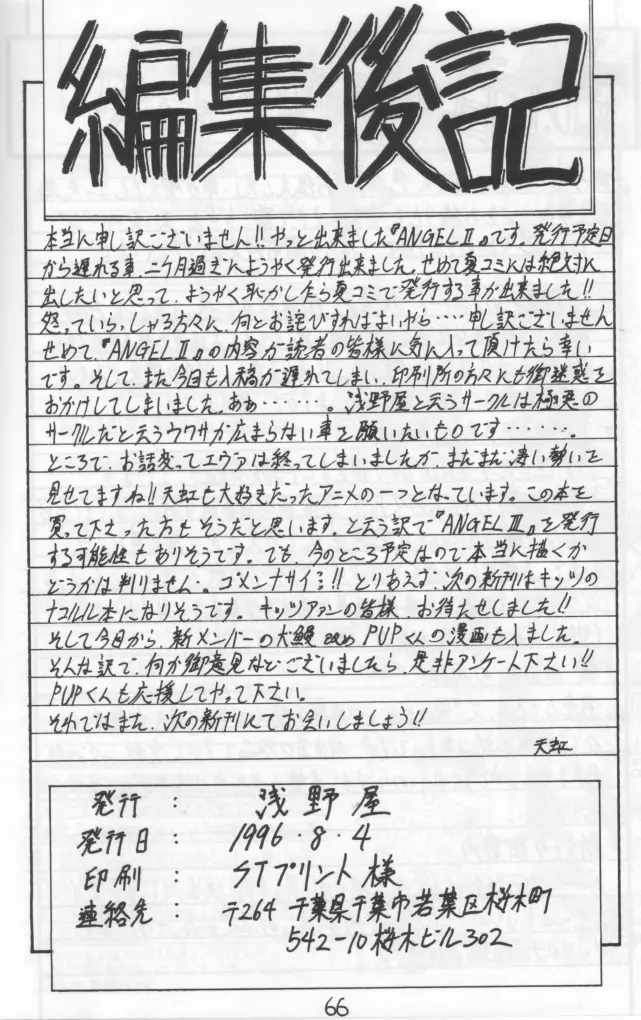 編集後記
本当に申し訳ございません!!やっと出来ました『ANGELⅡ』です。発行予定日
から遅れる事、二ケ月過ぎにようやく発行出来ました。せめて夏コミには絶対に
出したいと思って、ようやく恥かしたら夏コミで発行する事が出来ました!!
怒っていらっしゃる方々に、何とお詫びすればよいやら‥‥申し訳ございません
せめて、『ANGELⅡ』の内容が読者の皆様に気に入って頂けたら幸い
です。そして、また今回も入稿が遅れてしまい、印刷所の方々にも御迷惑を
おかけしてしまいました。ああ‥‥‥‥。浅野屋と云うサークルは極悪の
サークルだと云うウワサが広まらない事を願いたいものです‥‥‥。
ところで、お話変ってエヴァは終ってしまいましたが、まだまだ凄い勢いを
見せてますね!!天虹も大好きだったアニメの一つとなっています。この本を
買って下さった方もそうだと思います。と云う訳で『ANGELⅢ』を発行
する可能性もありそうです。でも、今のところ予定なので本当に描くか
どうかは判りません。ゴメンナサイ!!とりあえず、次の新刊はキッツの
ナコルル本になりそうです。キッツファンの皆様、お待たせしました!!
そして今回から、新メンバーの犬鰻 改め PUPくんの漫画も入ました。
そんな訳で、何か御意見などございましたら、是非アンケート下さい!!
PUPくんも応援してやって下さい。
それではまた、次の新刊にてお会いしましょう!!
天虹
発行 : 浅野屋
発行日 : 1996・8・4
印刷 : STプリント様
連絡先 : 〒264 千葉県千葉市若葉区桜木町
542-10 桜木ビル302
66